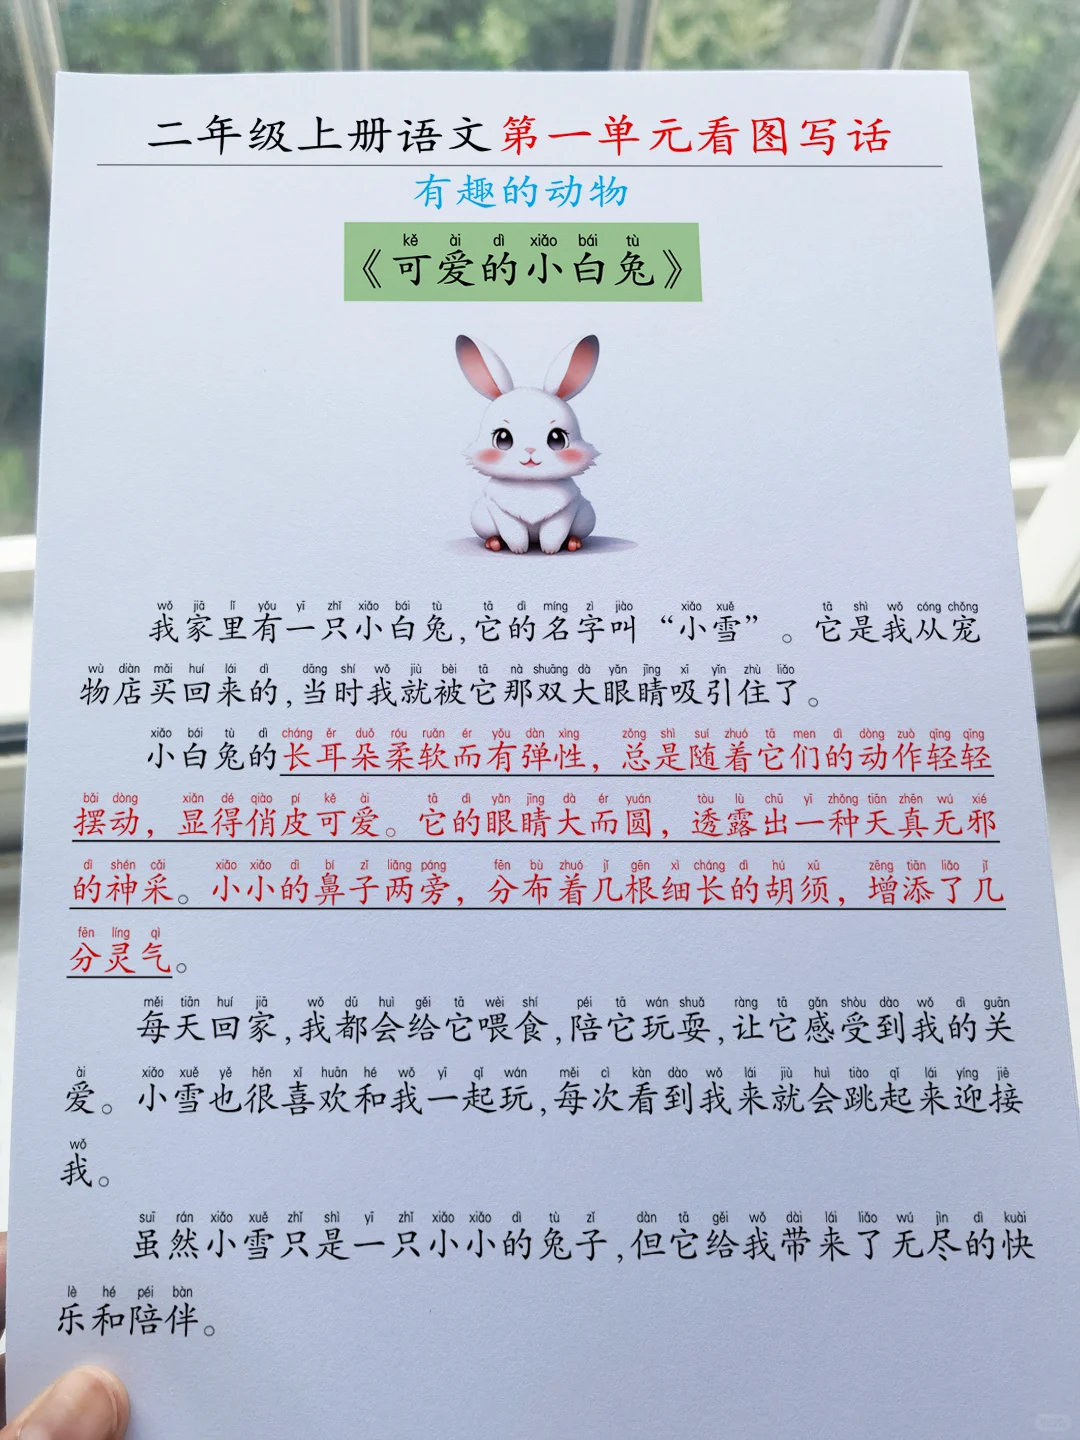 二年级上册语文第一单元看图写话
有趣的动物
kě ài dì xiǎo bái tù
《可爱的小白兔》
wǒ jiā lǐ yǒu yī zhǐ xiǎo bái tù tā dì míng zì jiào xiǎo xuě tā shì wǒ cóng chǒng
我家里有一只小白兔,它的名字叫“小雪”。它是我从宠
wù diàn mǎi huí lái dì dāng shí wǒ jiù bèi tā nà shuāng dà yǎn jīng xī yǐn zhù liǎo
物店买回来的,当时我就被它那双大眼睛吸引住了。
xiǎo bái tù dì cháng ěr duǒ róu ruǎn ér yǒu dàn xìng zǒng shì suí zhuó tā men dì dòng zuò qīng qīng
小白兔的长耳朵柔软而有弹性，总是随着它们的动作轻轻
bǎi dòng xiǎn dé qiào pí kě ài tā dì yǎn jīng dà ér yuán tòu lù chū yī zhǒng tiān zhēn wú xié
摆动，显得俏皮可爱。它的眼睛大而圆，透露出一种天真无邪
dì shén cǎi xiǎo xiǎo dì bí zǐ liǎng páng fēn bù zhuó jǐ gēn xì cháng dì hú xū zēng tiān liǎo jǐ
的神采。小小的鼻子两旁，分布着几根细长的胡须，增添了几
fēn líng qì
分灵气。
měi tiān huí jiā wǒ dū huì gěi tā wèi shí péi tā wán shuǎ ràng tā gǎn shòu dào wǒ dì guān
每天回家,我都会给它喂食,陪它玩耍,让它感受到我的关
ài xiǎo xuě yě hěn xǐ huān hé wǒ yī qǐ wán měi cì kàn dào wǒ lái jiù huì tiào qǐ lái yíng jiē
爱。小雪也很喜欢和我一起玩,每次看到我来就会跳起来迎接
wǒ
我。
suī rán xiǎo xuě zhǐ shì yī zhǐ xiǎo xiǎo dì tù zǐ dàn tā gěi wǒ dài lái liǎo wú jìn dì kuài
虽然小雪只是一只小小的兔子,但它给我带来了无尽的快
lè hé péi bàn
乐和陪伴。